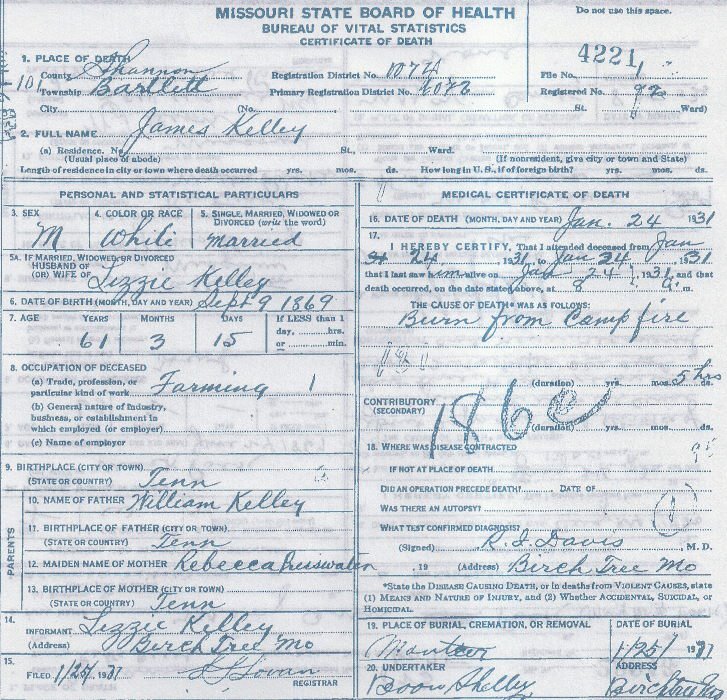 MISSOURI STATE BOARD OF HEALTH
BUREAU OF VITAL STATISTICS
CERTIFICATE OF DEATH
Do not use this space.
4221
1. PLACE OF DEATH
County Shannon Registration District No. 1074 File No.
101 Township Bartlett Primary Registration District No. 4072 Registered No. 92
City (No. St. Ward)
2. FULL NAME James Kelley
(a) Residence. No. St., Ward.
(Usual place of abode) (If nonresident, give city or town and State)
Length of residence in city or town where death occurred yrs. mos. ds. How long in U.S., if of foreign birth? yrs. mos. ds.
PERSONAL AND STATISTICAL PARTICULARS
3. SEX 4. COLOR OR RACE 5. SINGLE, MARRIED, WIDOWED OR DIVORCED (write the word)
M White Married
5A. IF MARRIED, WIDOWED, OR DIVORCED
HUSBAND OF
(OR) WIFE OF Lizzie Kelley
6. DATE OF BIRTH (MONTH, DAY AND YEAR) Sept 9 1869
7. AGE YEARS MONTHS DAYS If LESS than 1
day, hrs.
61 3 15 or min.
8. OCCUPATION OF DECEASED
(a) Trade, profession, or
particular kind of work Farming 1
(b) General nature of industry,
business, or establishment in
which employed (or employer)
(c) Name of employer
9. BIRTHPLACE (CITY OR TOWN)
(STATE OR COUNTRY) Tenn
PARENTS
10. NAME OF FATHER William Kelley
11. BIRTHPLACE OF FATHER (CITY OR TOWN)
(STATE OR COUNTRY) Tenn
12. MAIDEN NAME OF MOTHER Rebecca Presswater
13. BIRTHPLACE OF MOTHER (CITY OR TOWN)
(STATE OR COUNTRY) Tenn
14.
INFORMANT Lizzie Kelley
(Address) Birch Tree Mo
15.
FILED 1/25/ 1931
REGISTRAR
MEDICAL CERTIFICATE OF DEATH
16. DATE OF DEATH (MONTH, DAY AND YEAR) Jan. 24 1931
17.
I HEREBY CERTIFY, That I attended deceased from Jan
24 1931, to Jan 24, 1931
that I last saw him alive on Jan 24, 1931, and that
death occurred, on the date stated above, at 8 a. m.
THE CAUSE OF DEATH* WAS AS FOLLOWS:
Burn from Camp fire
181
(duration) yrs. mos. 5 hrs ds.
CONTRIBUTORY
(SECONDARY)
186
(duration) yrs. mos. ds.
18. WHERE WAS DISEASE CONTRACTED
IF NOT AT PLACE OF DEATH
DID AN OPERATION PRECEDE DEATH? DATE OF
WAS THERE AN AUTOPSY?
WHAT TEST CONFIRMED DIAGNOSIS?
(Signed) R. I. Davis, M. D.
, 19 (Address) Birch Tree Mo
*State the DISEASE CAUSING DEATH, or in deaths from VIOLENT CAUSES, state
(1) MEANS AND NATURE OF INJURY, and (2) Whether ACCIDENTAL, SUICIDAL, or
HOMICIDAL.
19. PLACE OF BURIAL, CREMATION, OR REMOVAL DATE OF BURIAL
1/25/ 1931
20. UNDERTAKER ADDRESS